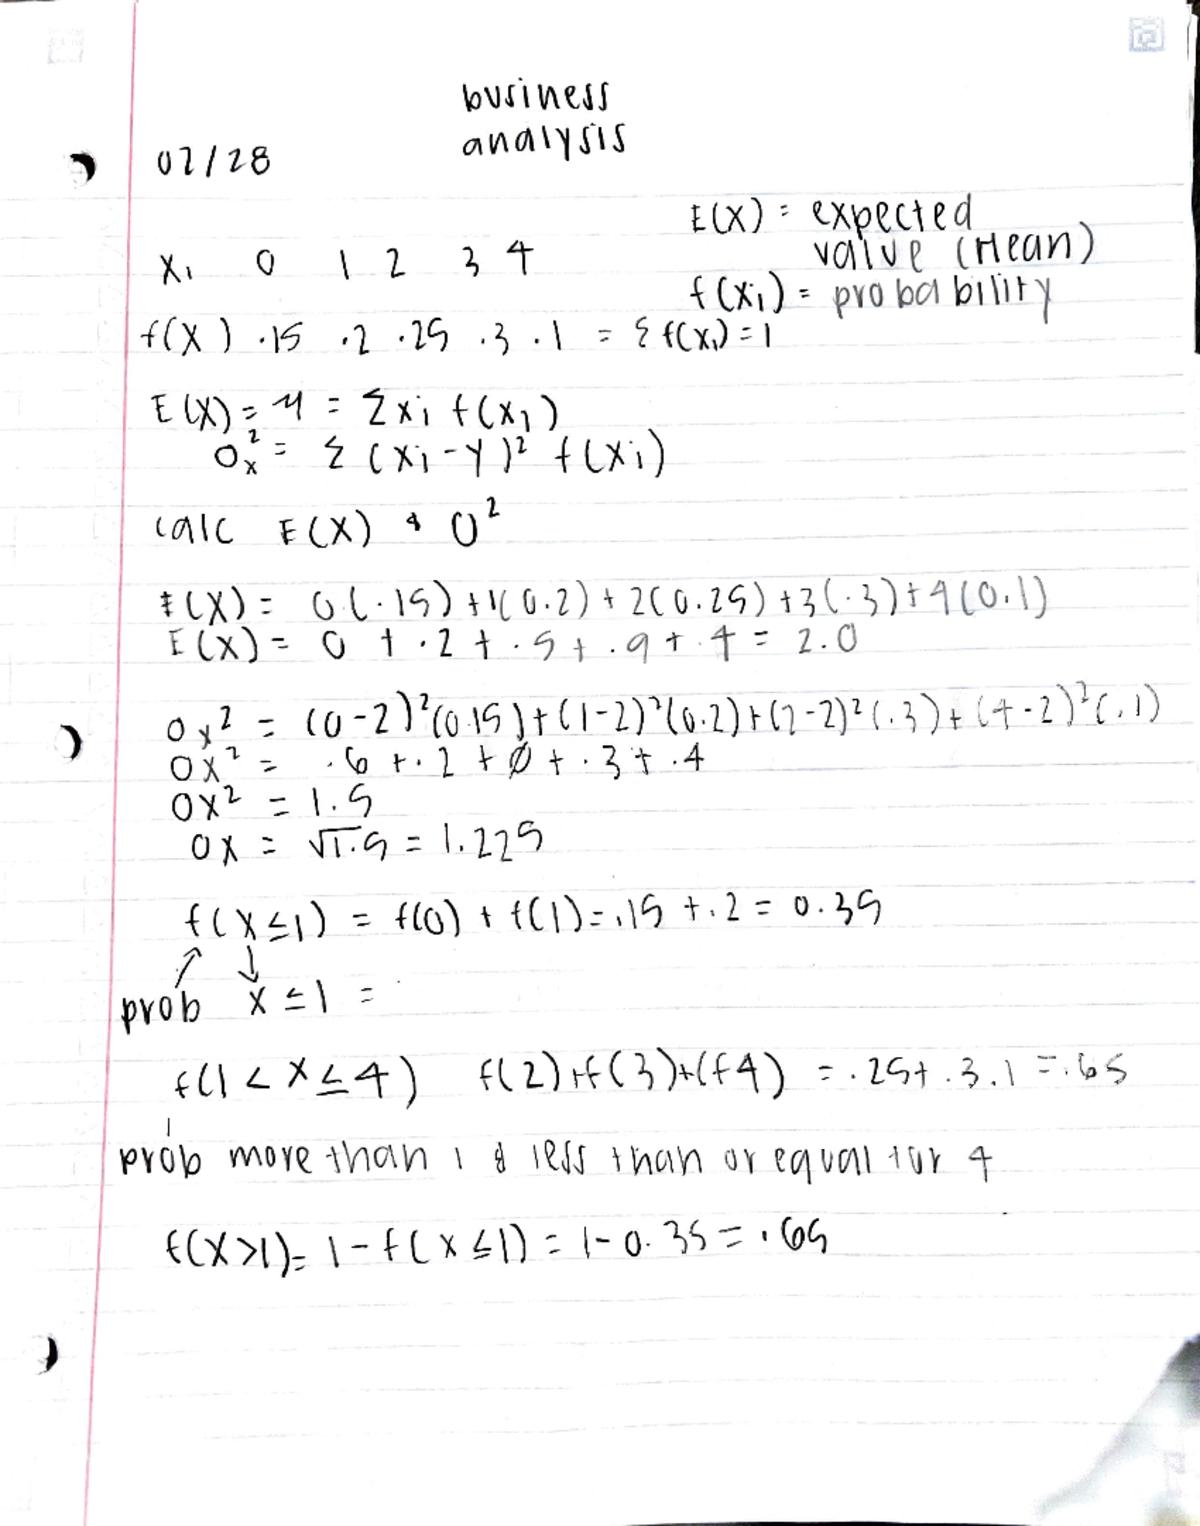 business
analysis
02/28
E(X) = expected
value (Mean)
xi 0 1 2 3 4
f(xi) = probability
f(x) .15 .2 .25 .3 .1 = Σ f(xi) = 1
E(X) = μ = Σxi f(xi)
σx² = Σ (xi - μ)² f(xi)
calc E(X) & σ²
E(X) = 0(.15) + 1(0.2) + 2(0.25) + 3(.3) + 4(0.1)
E(X) = 0 + .2 + .5 + .9 + .4 = 2.0
σx² = (0-2)²(0.15) + (1-2)²(0.2) + (2-2)²(.3) + (4-2)²(.1)
σx² = .6 + .2 + Ø + .3 + .4
σx² = 1.5
σx = √1.5 = 1.225
f(x≤1) = f(0) + f(1) = .15 + .2 = 0.35
prob x≤1 =
f(1 < x ≤ 4) f(2)+f(3)+(f4) = .25+.3.1 = .65
prob more than 1 & less than or equal tor 4
f(x>1) = 1 - f(x≤1) = 1 - 0.35 = .65